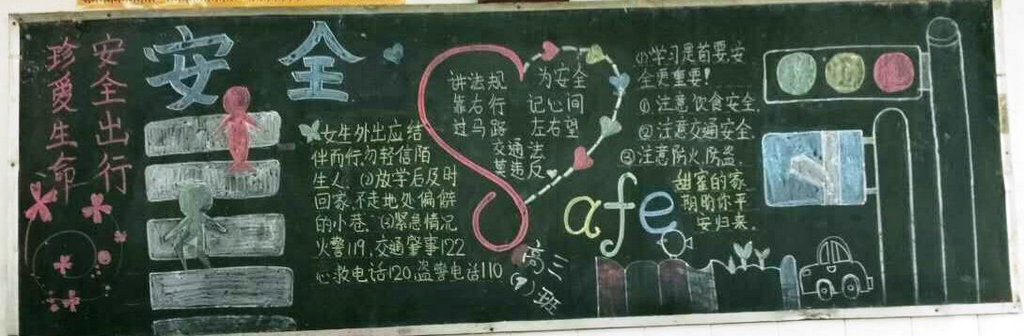 安全出行
珍爱生命
安全
女生外出应结
伴而行勿轻信陌
生人.(2)放学后及时
回家不走地处偏僻
的小巷.(3)紧急情况
火警119.交通肇事122
急救电话120盗警电话110
讲法规 为安全
靠右行 记心间
过马路 左右望
交通法
莫违反
Safe
高三
(9)班
①学习是首要,安
全更重要!
①注意饮食安全.
②注意交通安全.
③注意防火.防盗.
甜蜜的家
期盼你平
安归来.